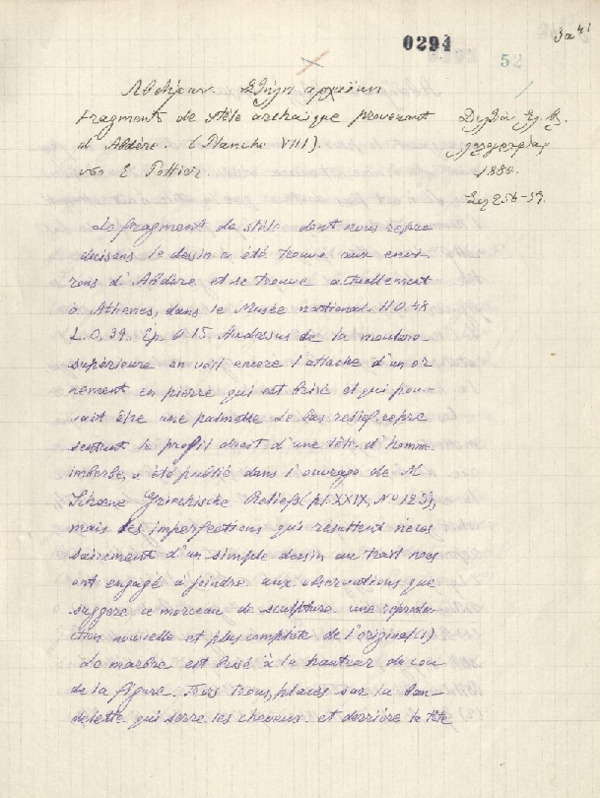 0294
52
3a 41
Αβδήρων. Στήλη αρχαϊκη
Fragment de stèle archaïque provenant
d'Abdère. (Planche VIII).
υπο E Pottier.
Δελτίον Ελ. Αλ.
1880.
Σελ 256-59.
Le fragment de stèle dont nous repro
duisons le dessin a été trouvé aux envi
rons d'Abdère et se trouve actuellement
à Athènes, dans le Musée national. H 0.48
L. 0,39. Ep. 0 15. Audessus de la moulure
supérieure on voit encore l'attache d'un or
nement en pierre qui est brisé et qui pou-
vait être une palmette. Le bas relief repré
sentant le profil droit d'une tête d'homme
imberbe, a été publié dans l'ouvrage de M
Schoene Griechische Reliefs (pl. XXIX, No 123),
mais les imperfections qui résultent néces
sairement d'un simple dessin au trait nous
ont engagé à joindre aux observations que
suggère ce morceau de sculpture une reprodu
ction nouvelle et plus complète de l'original (1)
Le marbre est brisé à la hauteur du cou
de la figure. Trois trous, placés sur la ban
delette qui serre les cheveux et derrière la tête